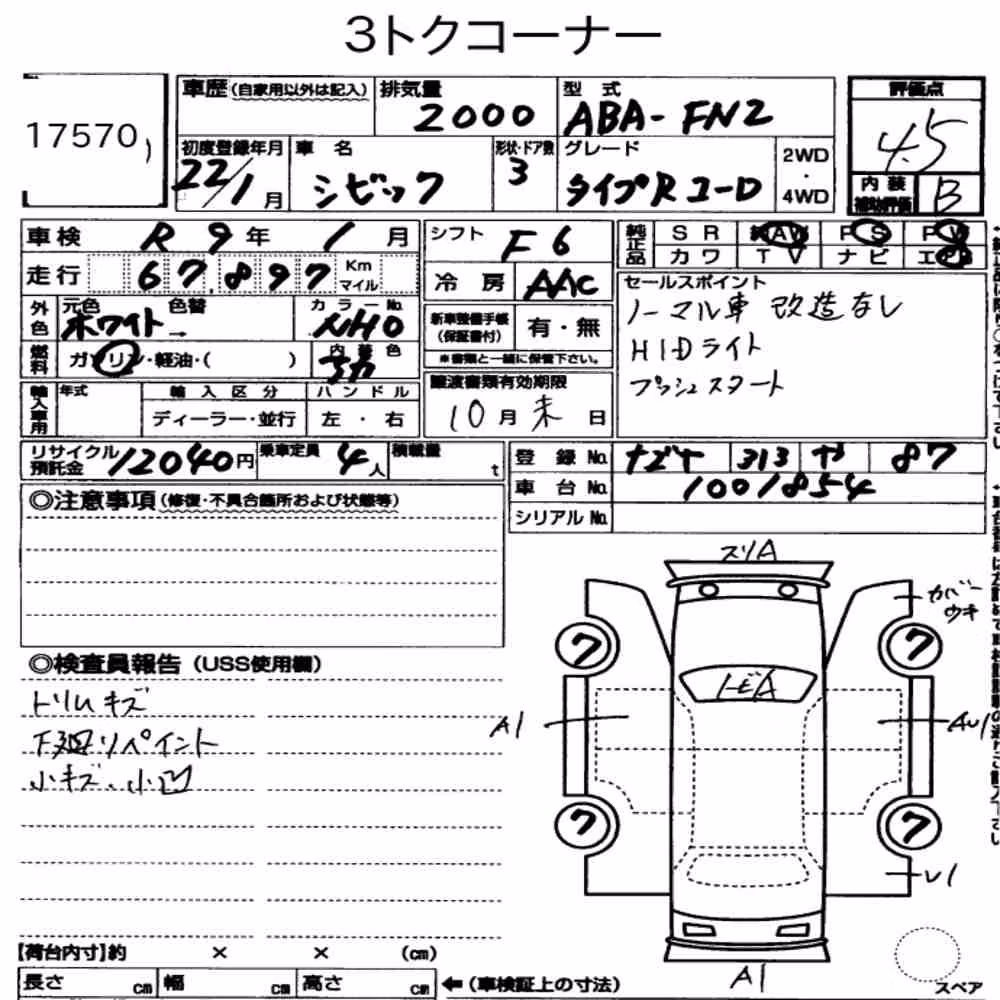 3トクコーナー
17570
車歴 (自家用以外は記入) 排気量 2000 型式 ABA-FN2
初度登録年月 22/1月 車名 シビック 形状・ドア数 3 グレード タイプR ユーロ 2WD・4WD
評価点 4.5
内装補助評価 B
車検 R9年 1月
走行 67,897 Km マイル
シフト F6
冷房 AAC
純正品 SR AW PS PW
カワ TV ナビ エアB
外色 元色 ホワイト → 色替 カラーNo. NH0
燃料 ガソリン・軽油・( ) 内装色
新車整備手帳(保証書付) 有・無
※書類と一緒に保管下さい。
セールスポイント
ノーマル車 改造なし
HIDライト
プッシュスタート
輸入車用 年式 輸入区分 ディーラー・並行 ハンドル 左・右
譲渡書類有効期限
10月末日
リサイクル預託金 12040円 乗車定員 4人 積載量 t
登録No. 313 や 87
車台No. 1001854
シリアルNo.
◎注意事項 (修復・不具合箇所および状態等)
◎検査員報告 (USS使用欄)
トリムキズ
下廻リペイント
小キズ、小凹
スリA
カバーウキ
7
7
トビA
A1
AU1
7
7
U1
A1
スペア
【荷台内寸】約 × × (cm)
長さ cm 幅 cm 高さ cm ←(車検証上の寸法)